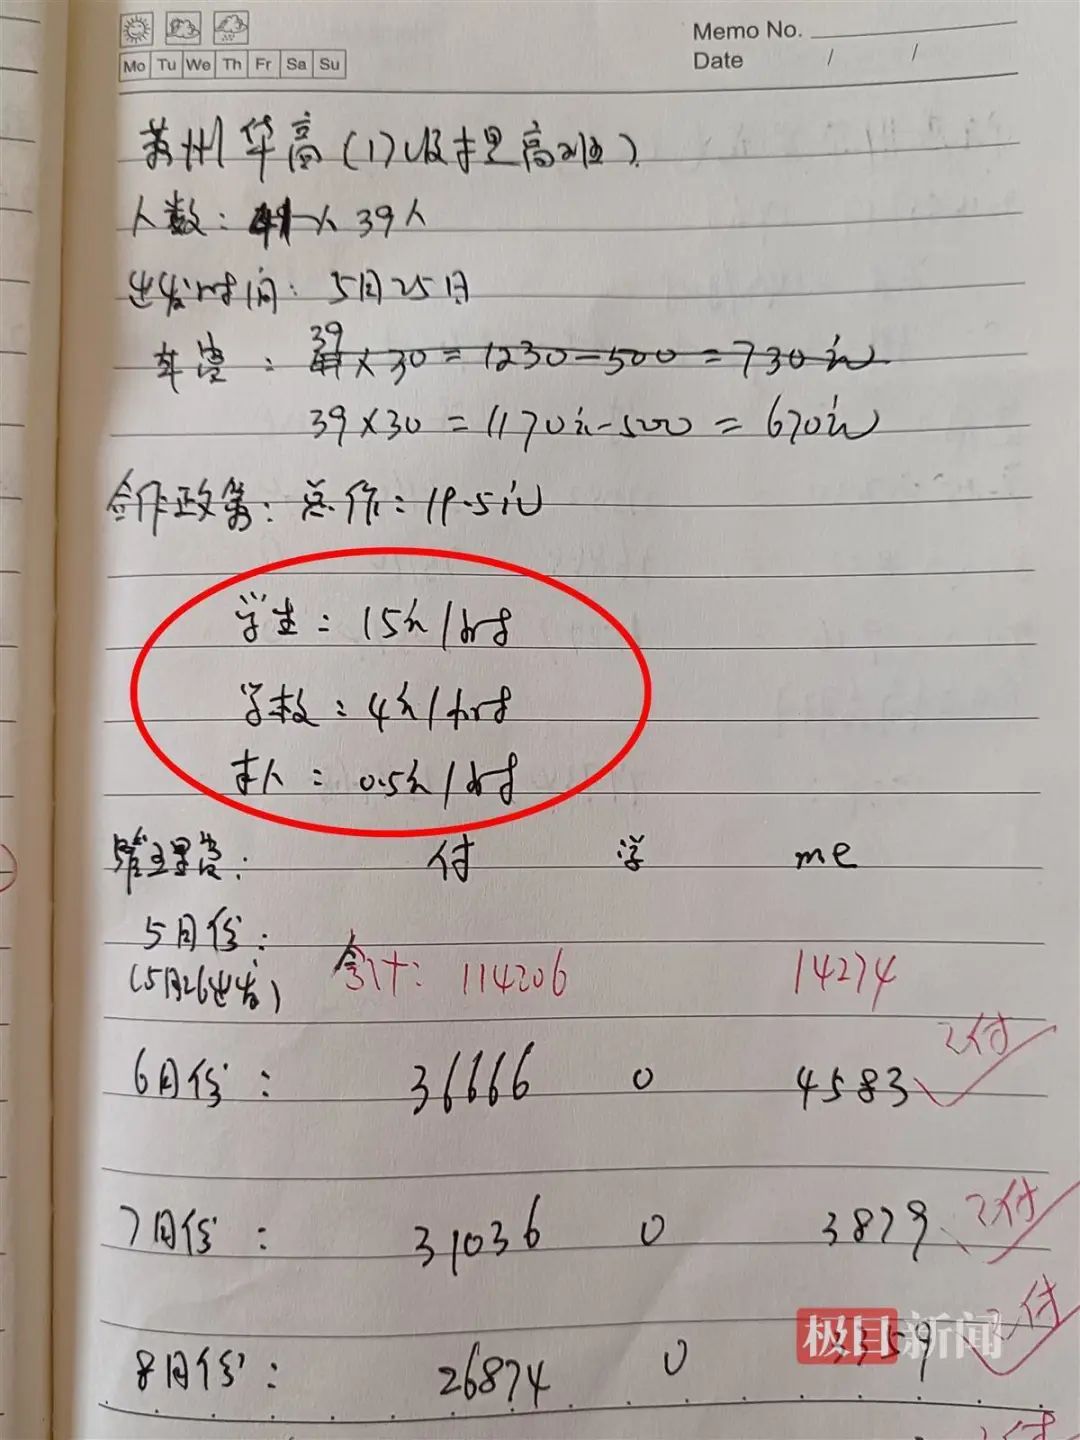 Memo No.
Mo Tu We Th Fr Sa Su
Date / /
苏州华高(17级提高班)
人数: 41人 39人
出发时间: 5月25日
车费: 39 41×30=1230-500=730元
39×30=1170元-500=670元
合作政策: 总价: 19.5元
学生: 15元/时
学校: 4元/时
本人: 0.5元/时
管理费: 付 学 me
5月份:
(5月26出发) 合计: 114206 14274
6月份: 36666 0 4583 已付
7月份: 31036 0 3879 已付
8月份: 26874 0 3359 已付
极目新闻